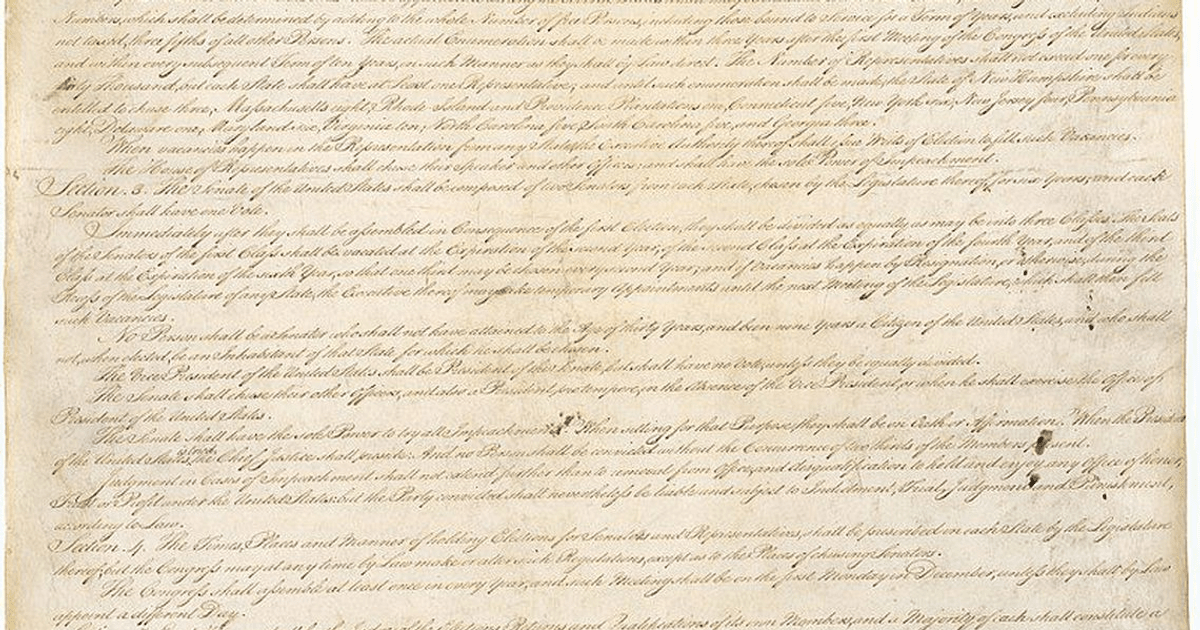 Numbers, which shall be determined by adding to the whole Number of free Persons, including those bound to Service for a Term of Years, and excluding Indians
not taxed, three fifths of all other Persons. The actual Enumeration shall be made within three Years after the first Meeting of the Congress of the United States,
and within every subsequent Term of ten Years, in such Manner as they shall by Law direct. The Number of Representatives shall not exceed one for every
thirty Thousand, but each State shall have at Least one Representative; and until such enumeration shall be made, the State of New Hampshire shall be
entitled to chuse three, Massachusetts eight, Rhode-Island and Providence Plantations one, Connecticut five, New-York six, New Jersey four, Pennsylvania
eight, Delaware one, Maryland six, Virginia ten, North Carolina five, South Carolina five, and Georgia three.
When vacancies happen in the Representation from any State, the Executive Authority thereof shall issue Writs of Election to fill such Vacancies.
The House of Representatives shall chuse their Speaker and other Officers; and shall have the sole Power of Impeachment.
Section. 3. The Senate of the United States shall be composed of two Senators from each State, chosen by the Legislature thereof, for six Years; and each
Senator shall have one Vote.
Immediately after they shall be assembled in Consequence of the first Election, they shall be divided as equally as may be into three Classes. The Seats
of the Senators of the first Class shall be vacated at the Expiration of the second Year, of the second Class at the Expiration of the fourth Year, and of the third
Class at the Expiration of the sixth Year, so that one third may be chosen every second Year; and if Vacancies happen by Resignation, or otherwise, during the
Recess of the Legislature of any State, the Executive thereof may make temporary Appointments until the next Meeting of the Legislature, which shall then fill
such Vacancies.
No Person shall be a Senator who shall not have attained to the Age of thirty Years, and been nine Years a Citizen of the United States, and who shall
not, when elected, be an Inhabitant of that State for which he shall be chosen.
The Vice President of the United States shall be President of the Senate, but shall have no Vote, unless they be equally divided.
The Senate shall chuse their other Officers, and also a President pro tempore, in the Absence of the Vice President, or when he shall exercise the Office of
President of the United States.
The Senate shall have the sole Power to try all Impeachments. When sitting for that Purpose, they shall be on Oath or Affirmation. When the President
of the United States is tried, the Chief Justice shall preside: And no Person shall be convicted without the Concurrence of two thirds of the Members present.
Judgment in Cases of Impeachment shall not extend further than to removal from Office, and disqualification to hold and enjoy any Office of honor,
Trust or Profit under the United States: but the Party convicted shall nevertheless be liable and subject to Indictment, Trial, Judgment and Punishment,
according to Law.
Section. 4. The Times, Places and Manner of holding Elections for Senators and Representatives, shall be prescribed in each State by the Legislature
thereof; but the Congress may at any time by Law make or alter such Regulations, except as to the Places of chusing Senators.
The Congress shall assemble at least once in every Year, and such Meeting shall be on the first Monday in December, unless they shall by Law
appoint a different Day.
of the Elections, Returns and Qualifications of its own Members, and a Majority of each shall constitute a